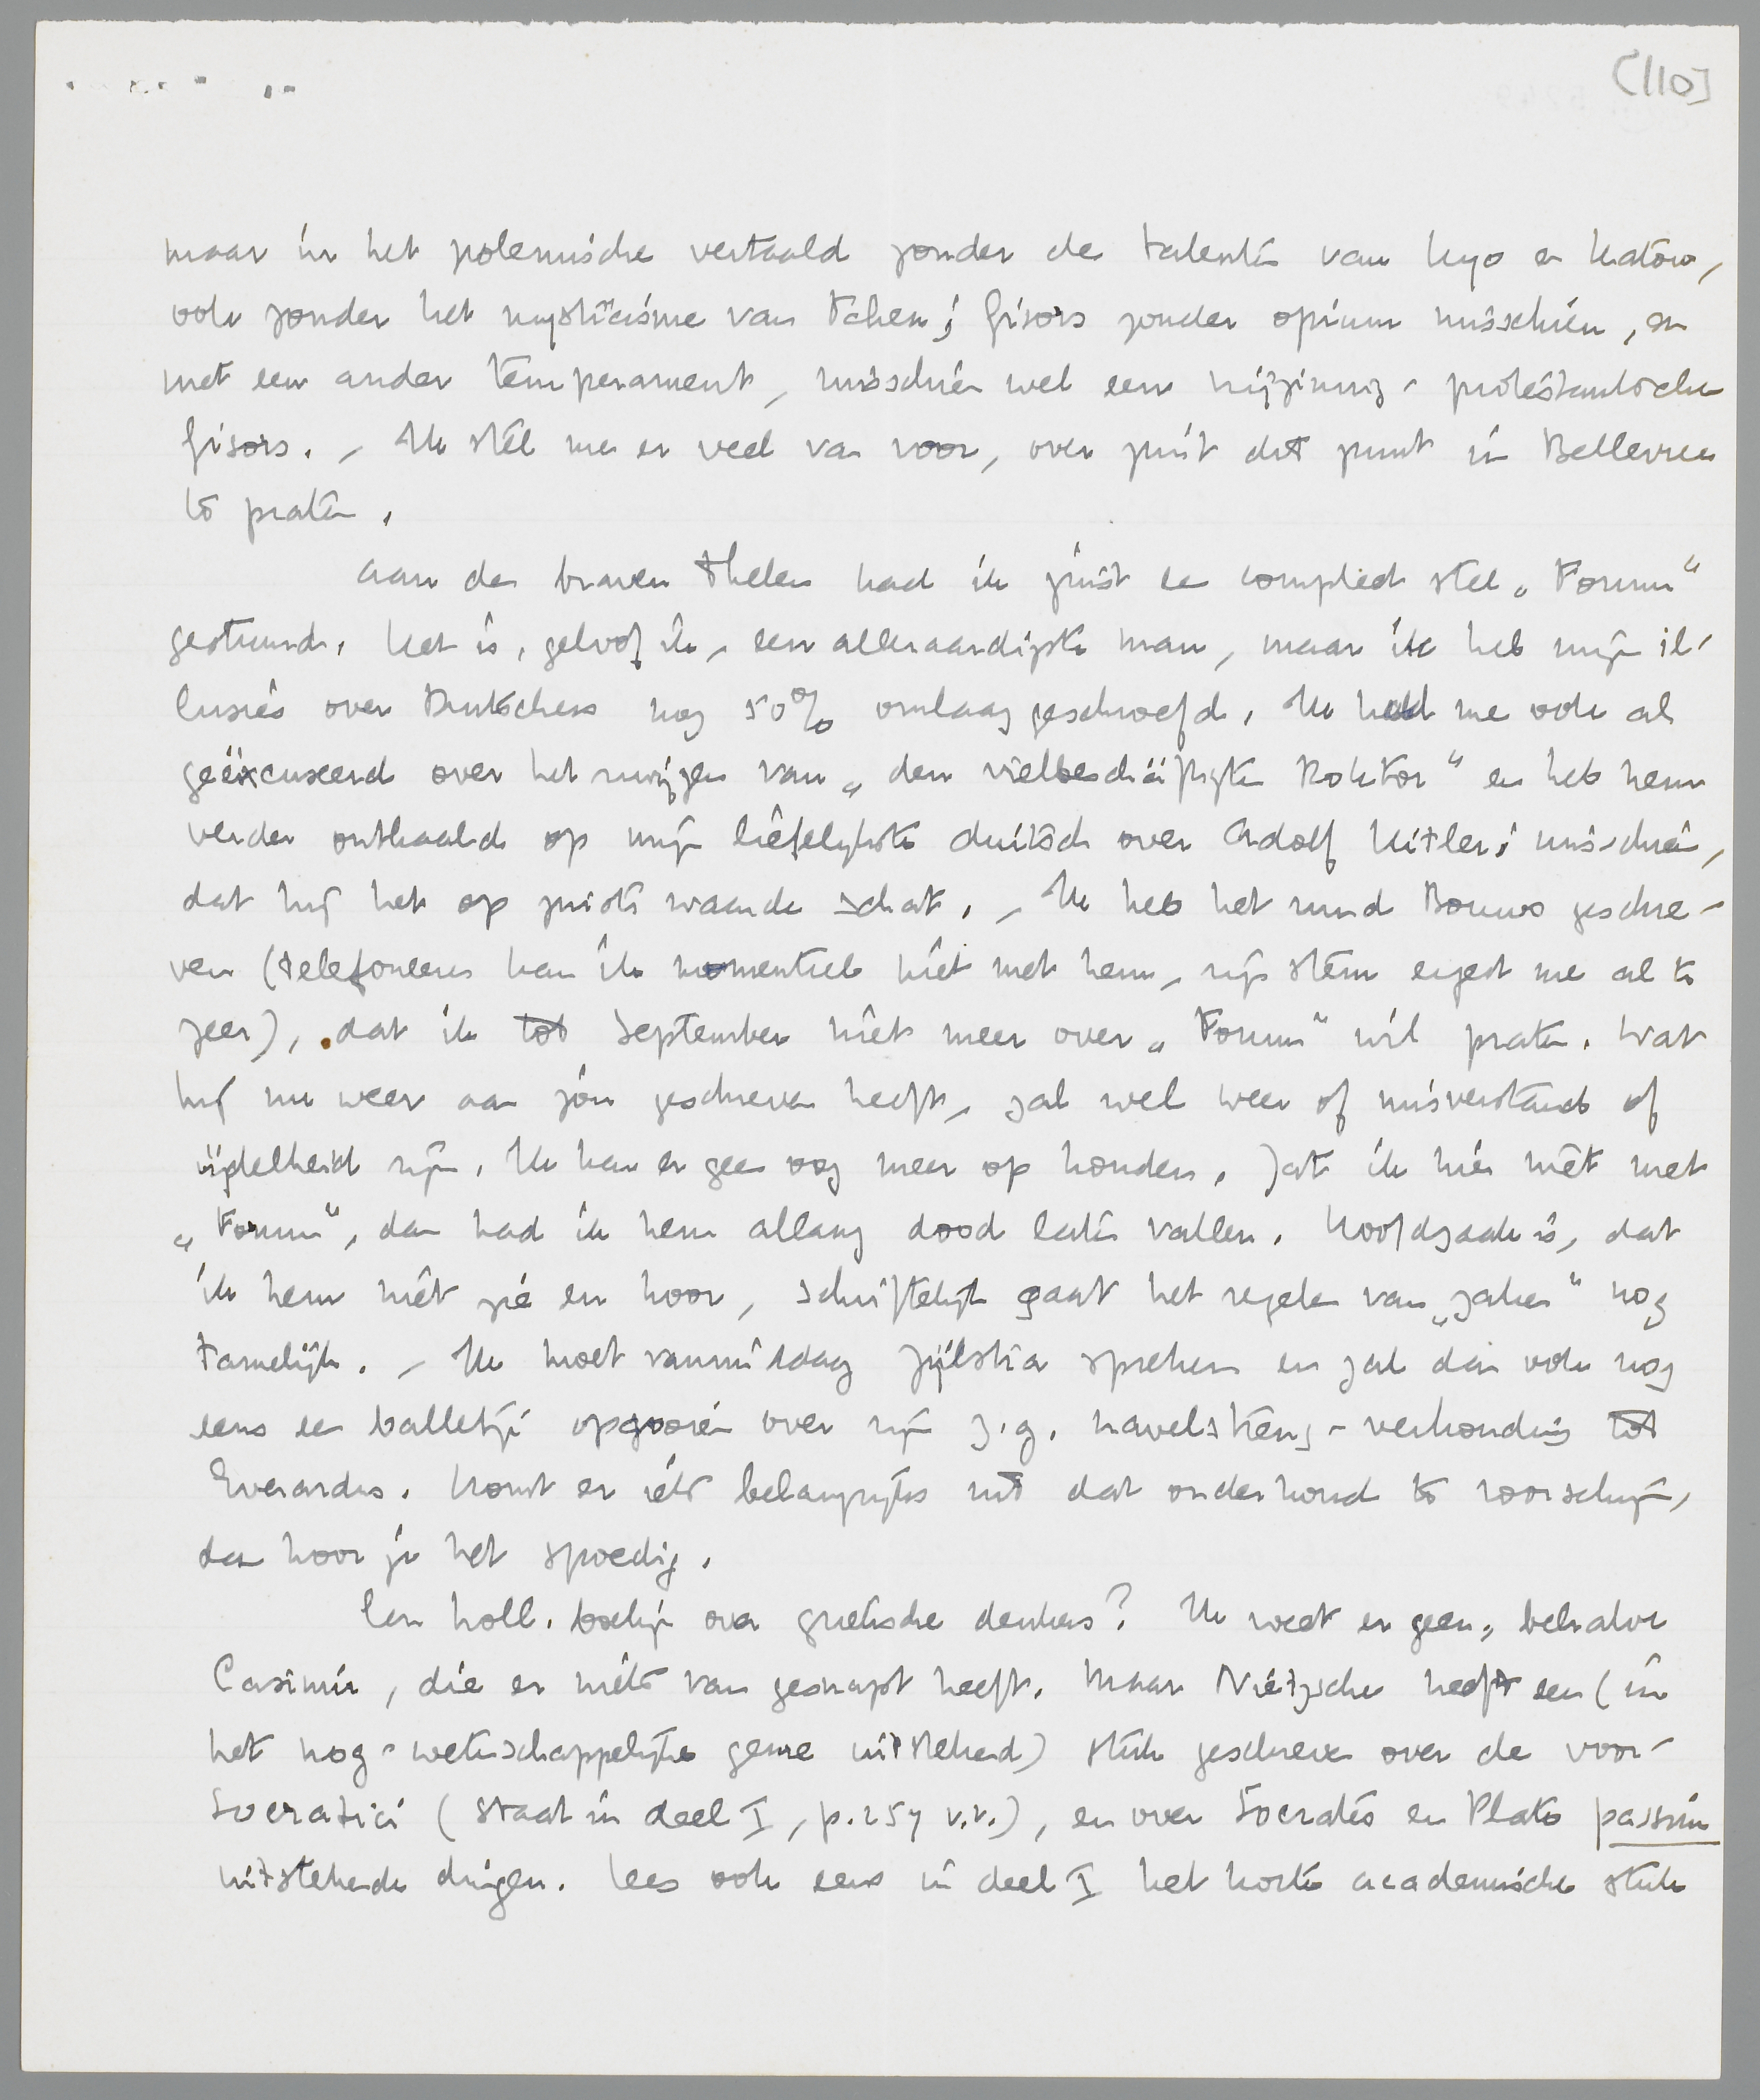 [110]
maar in het polemische vertaald zonder de talenten van Kyo en Katow,
ook zonder het mysticisme van Tchen; Gisors zonder opium misschien, en
met een ander temperament, misschien wel een vrijzinnig-protestantsche
Gisors. – Ik stel me er veel van voor, over juist dat punt in Bellevue
te praten.
Aan den braven Thelen had ik juist een compleet stel „Forum“
gestuurd. Het is, geloof ik, een alleraardigste man, maar ik heb mijn il-
lusies over Deutschers nog 50% omlaaggeschroefd. Ik had me ook al
geëxcuseerd over het zwijgen van „den vielbeschäftigten Doktor“ en heb hem
verder onthaald op mijn liefelijkste duitsch over Adolf Hitler; misschien,
dat hij het op juiste waarde schat. – Ik heb het rund Bouws geschre-
ven (telefoneeren kan ik momenteel niet met hem, zijn stem ergert me al te
zeer), dat ik tot September niet meer over „Forum“ wil praten. Wat
hij nu weer aan jou geschreven heeft, zal wel weer of misverstand of
ijdelheid zijn. Ik kan er geen oog meer op houden. Zat ik hier niet met
„Forum“, dan had ik hem allang dood laten vallen. Hoofdzaak is, dat
ik hem niet zie en hoor, schriftelijk gaat het regelen van „zaken“ nog
tamelijk. – Ik moet vanmiddag Zijlstra spreken en zal dan ook nog
eens een balletje opgooien over zijn z.g. navelstreng-verhouding tot
Everardus. Komt er iets belangrijks uit dat onderhoud te voorschijn,
dan hoor je het spoedig.
Een holl. boekje over grieksche denkers? Ik weet er geen, behalve
Casimir, die er niets van gesnapt heeft. Maar Nietzsche heeft een (in
het nog-wetenschappelijke genre uitstekend) stuk geschreven over de voor-
Socratici (staat in deel I, p. 257 v.v.), en over Socrates en Plato passim
uitstekende dingen. Lees ook eens in deel I het korte academische stuk